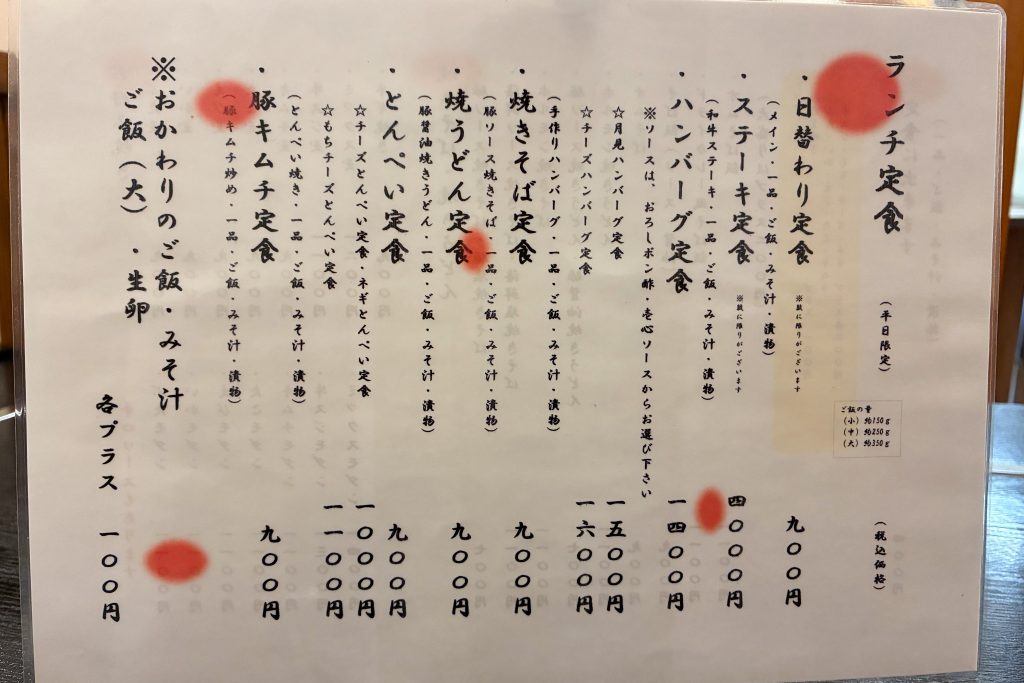 ランチ定食 (平日限定) (税込価格)
ご飯の量
(小) 約150g
(中) 約250g
(大) 約350g
・日替わり定食 ※数に限りがございます 九〇〇円
(メイン・一品・ご飯・みそ汁・漬物)
・ステーキ定食 ※数に限りがございます 四〇〇〇円
(和牛ステーキ・一品・ご飯・みそ汁・漬物)
・ハンバーグ定食 一四〇〇円
※ソースは、おろしポン酢・壱心ソースからお選び下さい
☆月見ハンバーグ定食 一五〇〇円
☆チーズハンバーグ定食 一六〇〇円
(手作りハンバーグ・一品・ご飯・みそ汁・漬物)
・焼きそば定食 九〇〇円
(豚ソース焼きそば・一品・ご飯・みそ汁・漬物)
・焼うどん定食 九〇〇円
(豚醤油焼きうどん・一品・ご飯・みそ汁・漬物)
・とんぺい定食 九〇〇円
☆チーズとんぺい定食・ネギとんぺい定食 一〇〇〇円
☆もちチーズとんぺい定食 一一〇〇円
(とんぺい焼き・一品・ご飯・みそ汁・漬物)
・豚キムチ定食 九〇〇円
(豚キムチ炒め・一品・ご飯・みそ汁・漬物)
※おかわりのご飯・みそ汁
ご飯(大)・生卵 各プラス 一〇〇円